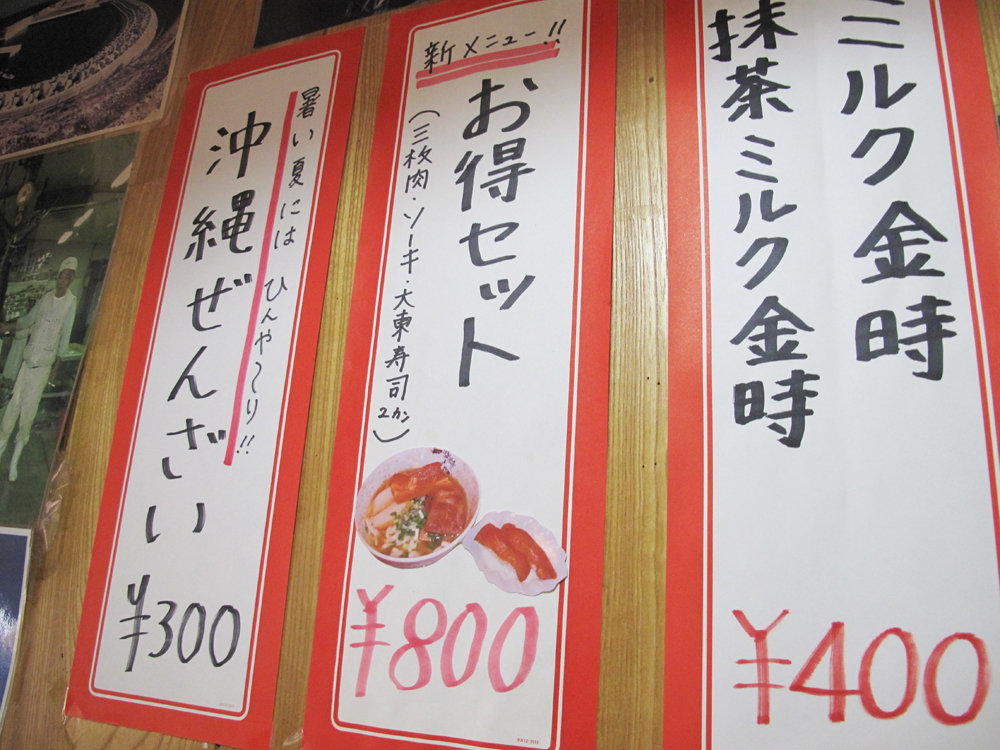 ミルク金時
抹茶ミルク金時
¥400
新メニュー!!
お得セット
(三枚肉・ソーキ・大東寿司2カン)
¥800
暑い夏には ひんや〜り!!
沖縄ぜんざい
¥300